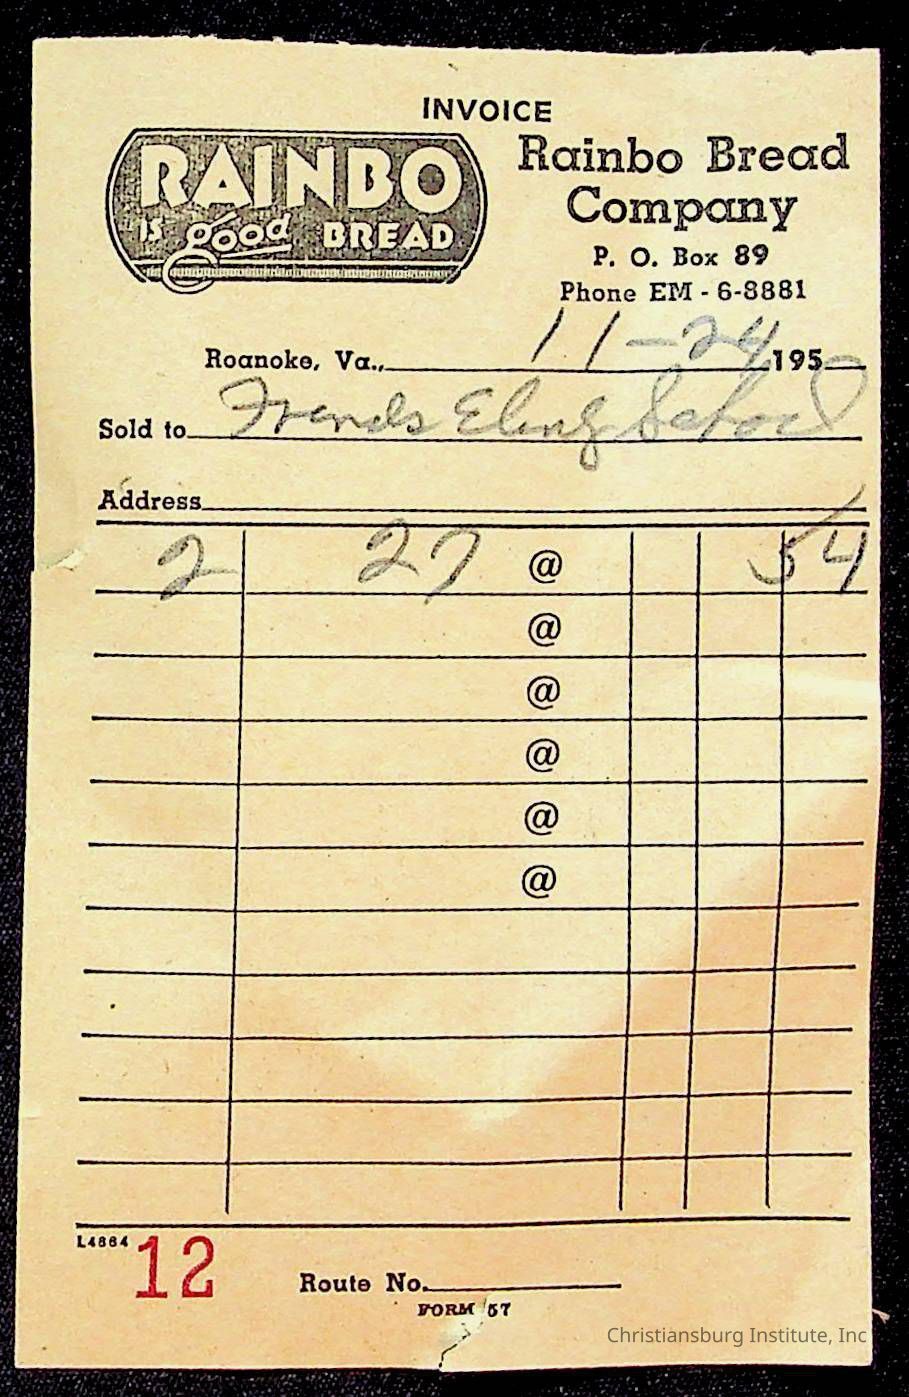 INVOICE
RAINBO
IS good BREAD
Rainbo Bread
Company
P. O. Box 89
Phone EM - 6-8881
Roanoke, Va., 11-24 195
Sold to Friends Elem School
Address
2 27 @ 54
@
@
@
@
@
L4864 12 Route No.
FORM 57
Christiansburg Institute, Inc